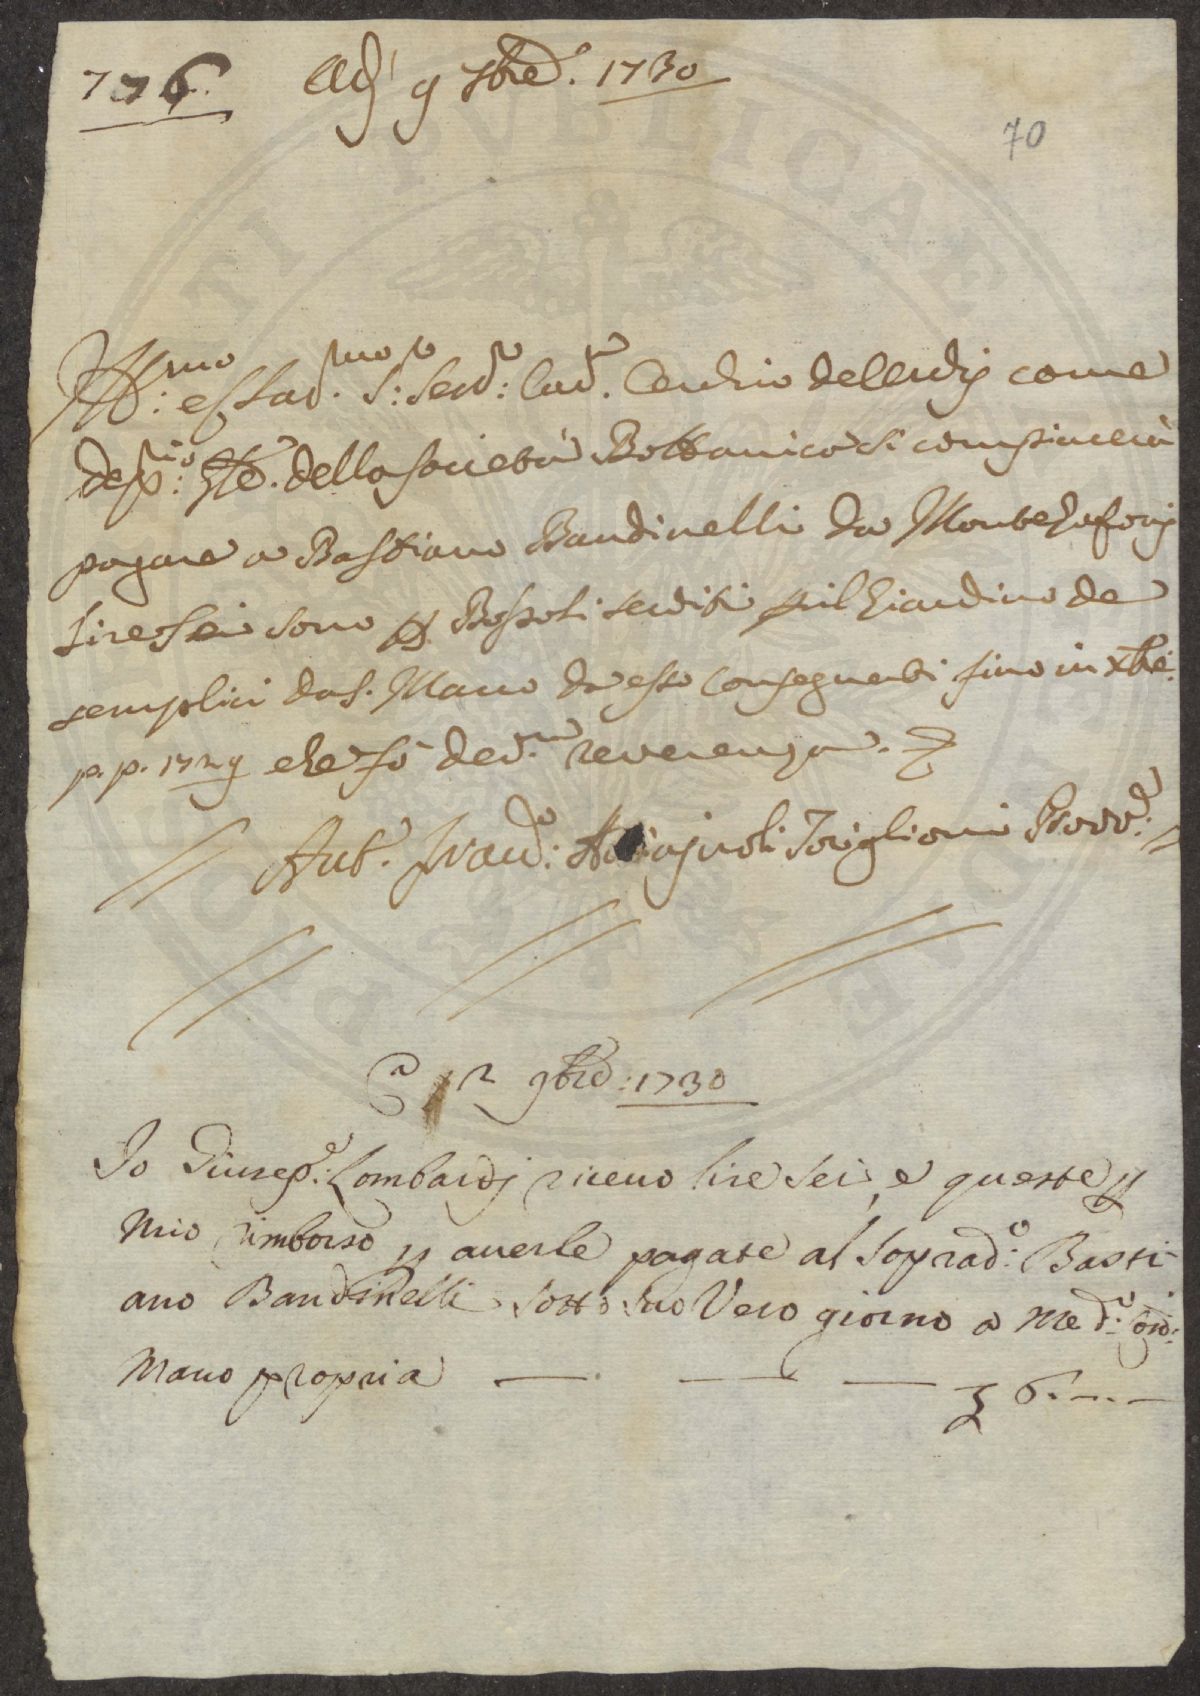 776. Adì 9 9bre. 1730
70
Ill:mo e Clar.mo S:r Sen:re Cav.re Cerchio de Cerchj come
dep:rio Gle. della società Bottanica si compiacerà
pagare a Bastiano Bandinelli da Montehaforj
Lire sei sono p Bossoli serviti p il Giardino de
semplici da S. Marco da esso consegnati fino in xbre:
p. p. 1729 e le fò dev.ma reverenza.
Ant.o Franc:o Toriglioni Provv.re
A 12 9bre: 1730
Io Giusep:e Lombardj riceuo lire sei, e queste p
Mio rimborso p auerle pagate al soprad:o Basti-
ano Bandinelli sotto suo Vero giorno a me d:o
Mano propria — — — £ 6. — . —